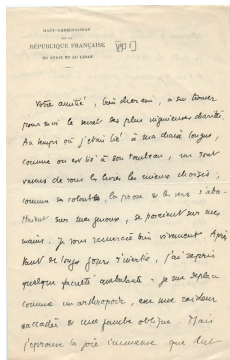 HAUT-COMMISSARIAT
DE LA
RÉPUBLIQUE FRANÇAISE
EN SYRIE ET AU LIBAN
[1931]
Votre amitié, très cher ami, a su trouver
pour moi le secret des plus ingénieuses charités
Au temps où j'étais lié à ma chaise longue,
comme on est lié à son tombeau, me sont
venus de vous les livres les mieux choisis;
comme des colombes, la prose et les vers s'aba-
ttaient sur mes genoux, se posaient sur mes
mains. Je vous remercie bien vivement. Après
tant de longs jours d'inertie, j'ai repris
quelque faculté ambulante. Je me déplace
comme un arthropode, avec une raideur
saccadée et une jambe oblique. Mais
j'éprouve la joie immense que dut